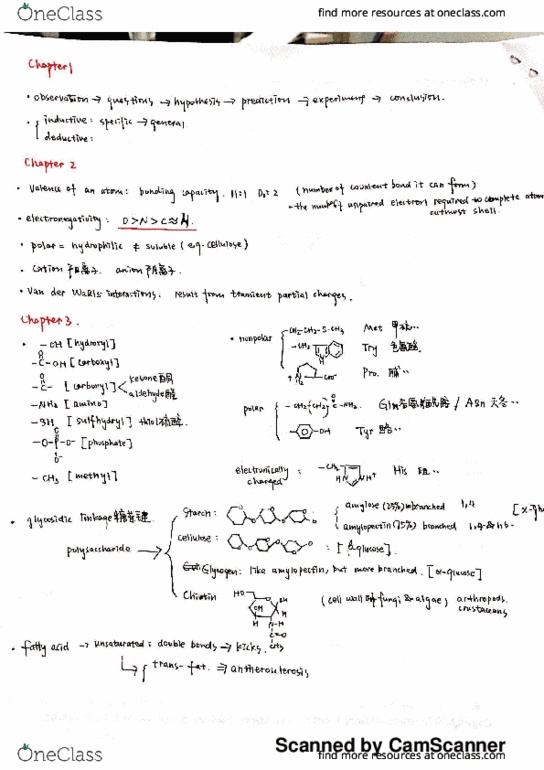 OneClass
find more resources at oneclass.com
Chapter 1
• observation → questions → hypothesis → prediction → experiment → conclusion.
• inductive: specific → general
deductive:
Chapter 2
• Valence of an atom: bonding capacity. H=1 O=2 (number of covalent bond it can form)
- the number of unpaired electron required to complete atom outmost shell.
• electronegativity: O > N > C ≈ H
• polar = hydrophilic ≠ soluble (e.g. cellulose)
• Cation 阳离子 anion 阴离子.
• Van der Waals interactions: result from transient partial charges.
Chapter 3.
• -OH [hydroxyl]
-C-OH [carboxyl]
O
-C- [carbonyl] ketone 酮
aldehyde 醛
-NH₂ [amino]
-SH [sulfhydryl] thiol
-O-P-O⁻ [phosphate]
O
O⁻
-CH₃ [methyl]
• nonpolar
-CH₂-CH₂-S-CH₃ Met 甲硫..
-CH₂ Try 色氨酸.
Pro. 脯..
polar
-CH₂(CH₂)-C-NH₂. Gln 谷氨酰胺 / Asn 天冬..
-OH Tyr 酪..
electronically charged :
-CH₂ His 组..
HN NH⁺
• glycosidic linkage 糖苷键.
polysaccharide →
Starch: amylose (25%) unbranched 1,4
amylopectin (75%) branched 1,4 & 1,6.
cellulose: [β glucose].
Glycogen: like amylopectin, but more branched. [α-glucose]
Chiatin HO OH OH H H N-H C=O CH₃ (cell wall of fungi & algae) arthropods. crustaceans
• fatty acid → unsaturated: double bonds → kicks.
trans-fat. ⇒ antherosclerosis
Scanned by CamScanner
OneClass
find more resources at oneclass.com